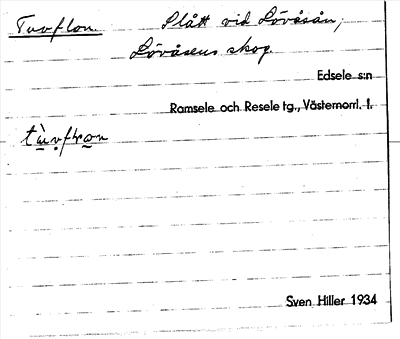 Tuvflon. Slått vid Lövåsån;
Lövåsens skog.
Edsele s:n
Ramsele och Resele tg., Västernorrl. l.
Sven Hiller 1934